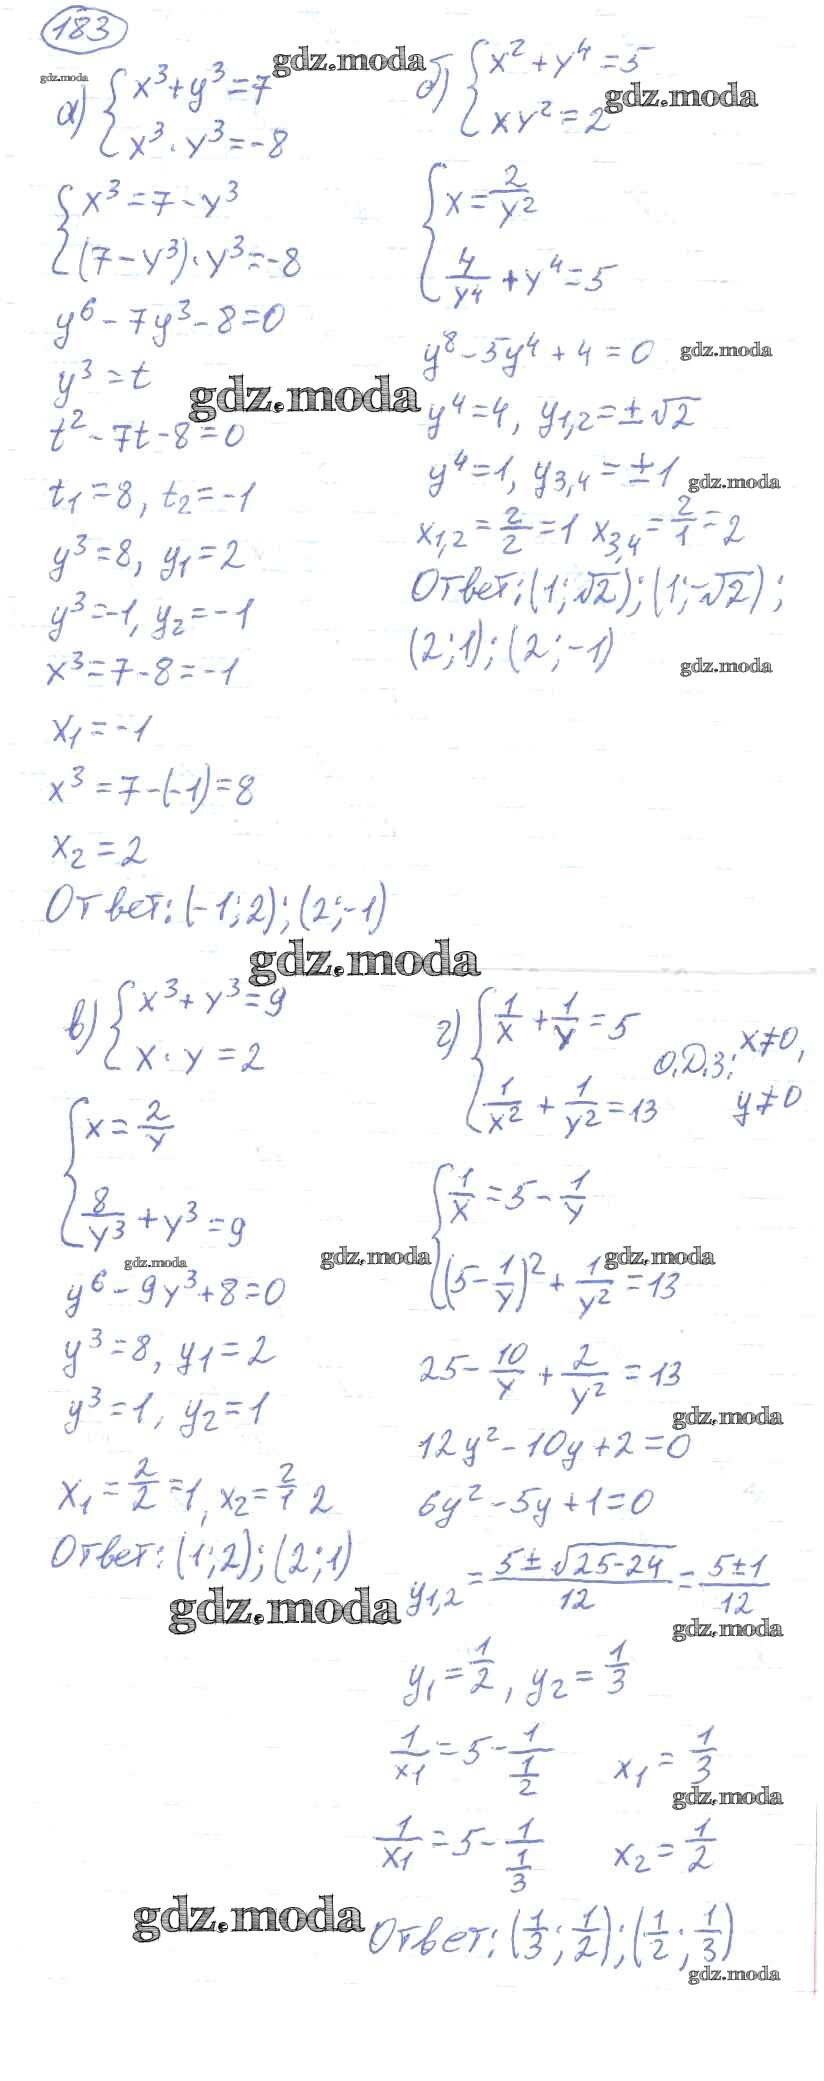 183
gdz.moda
gdz.moda
а) { x³ + y³ = 7
x³ · y³ = -8
{ x³ = 7 - y³
(7 - y³) · y³ = -8
y⁶ - 7y³ - 8 = 0
y³ = t
gdz.moda
t² - 7t - 8 = 0
t₁ = 8, t₂ = -1
y³ = 8, y₁ = 2
y³ = -1, y₂ = -1
x³ = 7 - 8 = -1
x₁ = -1
x³ = 7 - (-1) = 8
x₂ = 2
Ответ: (-1; 2); (2; -1)
б) { x² + y⁴ = 5
gdz.moda
xy² = 2
{ x = 2/y²
4/y⁴ + y⁴ = 5
y⁸ - 5y⁴ + 4 = 0
gdz.moda
y⁴ = 4, y₁,₂ = ±√2
y⁴ = 1, y₃,₄ = ±1
gdz.moda
x₁,₂ = 2/2 = 1 x₃,₄ = 2/1 = 2
Ответ: (1; √2); (1; -√2);
(2; 1); (2; -1)
gdz.moda
gdz.moda
в) { x³ + y³ = 9
x · y = 2
{ x = 2/y
8/y³ + y³ = 9
gdz.moda
y⁶ - 9y³ + 8 = 0
y³ = 8, y₁ = 2
y³ = 1, y₂ = 1
x₁ = 2/2 = 1, x₂ = 2/1 2
Ответ: (1; 2); (2; 1)
gdz.moda
г) { 1/x + 1/y = 5
1/x² + 1/y² = 13
О.Д.З: x ≠ 0,
y ≠ 0
{ 1/x = 5 - 1/y
gdz.moda
gdz.moda
(5 - 1/y)² + 1/y² = 13
25 - 10/y + 2/y² = 13
gdz.moda
12y² - 10y + 2 = 0
6y² - 5y + 1 = 0
y₁,₂ = (5 ± √25-24)/12 = (5 ± 1)/12
gdz.moda
y₁ = 1/2, y₂ = 1/3
1/x₁ = 5 - 1/(1/2) x₁ = 1/3
gdz.moda
1/x₁ = 5 - 1/(1/3) x₂ = 1/2
gdz.moda
Ответ: (1/3; 1/2); (1/2; 1/3)
gdz.moda